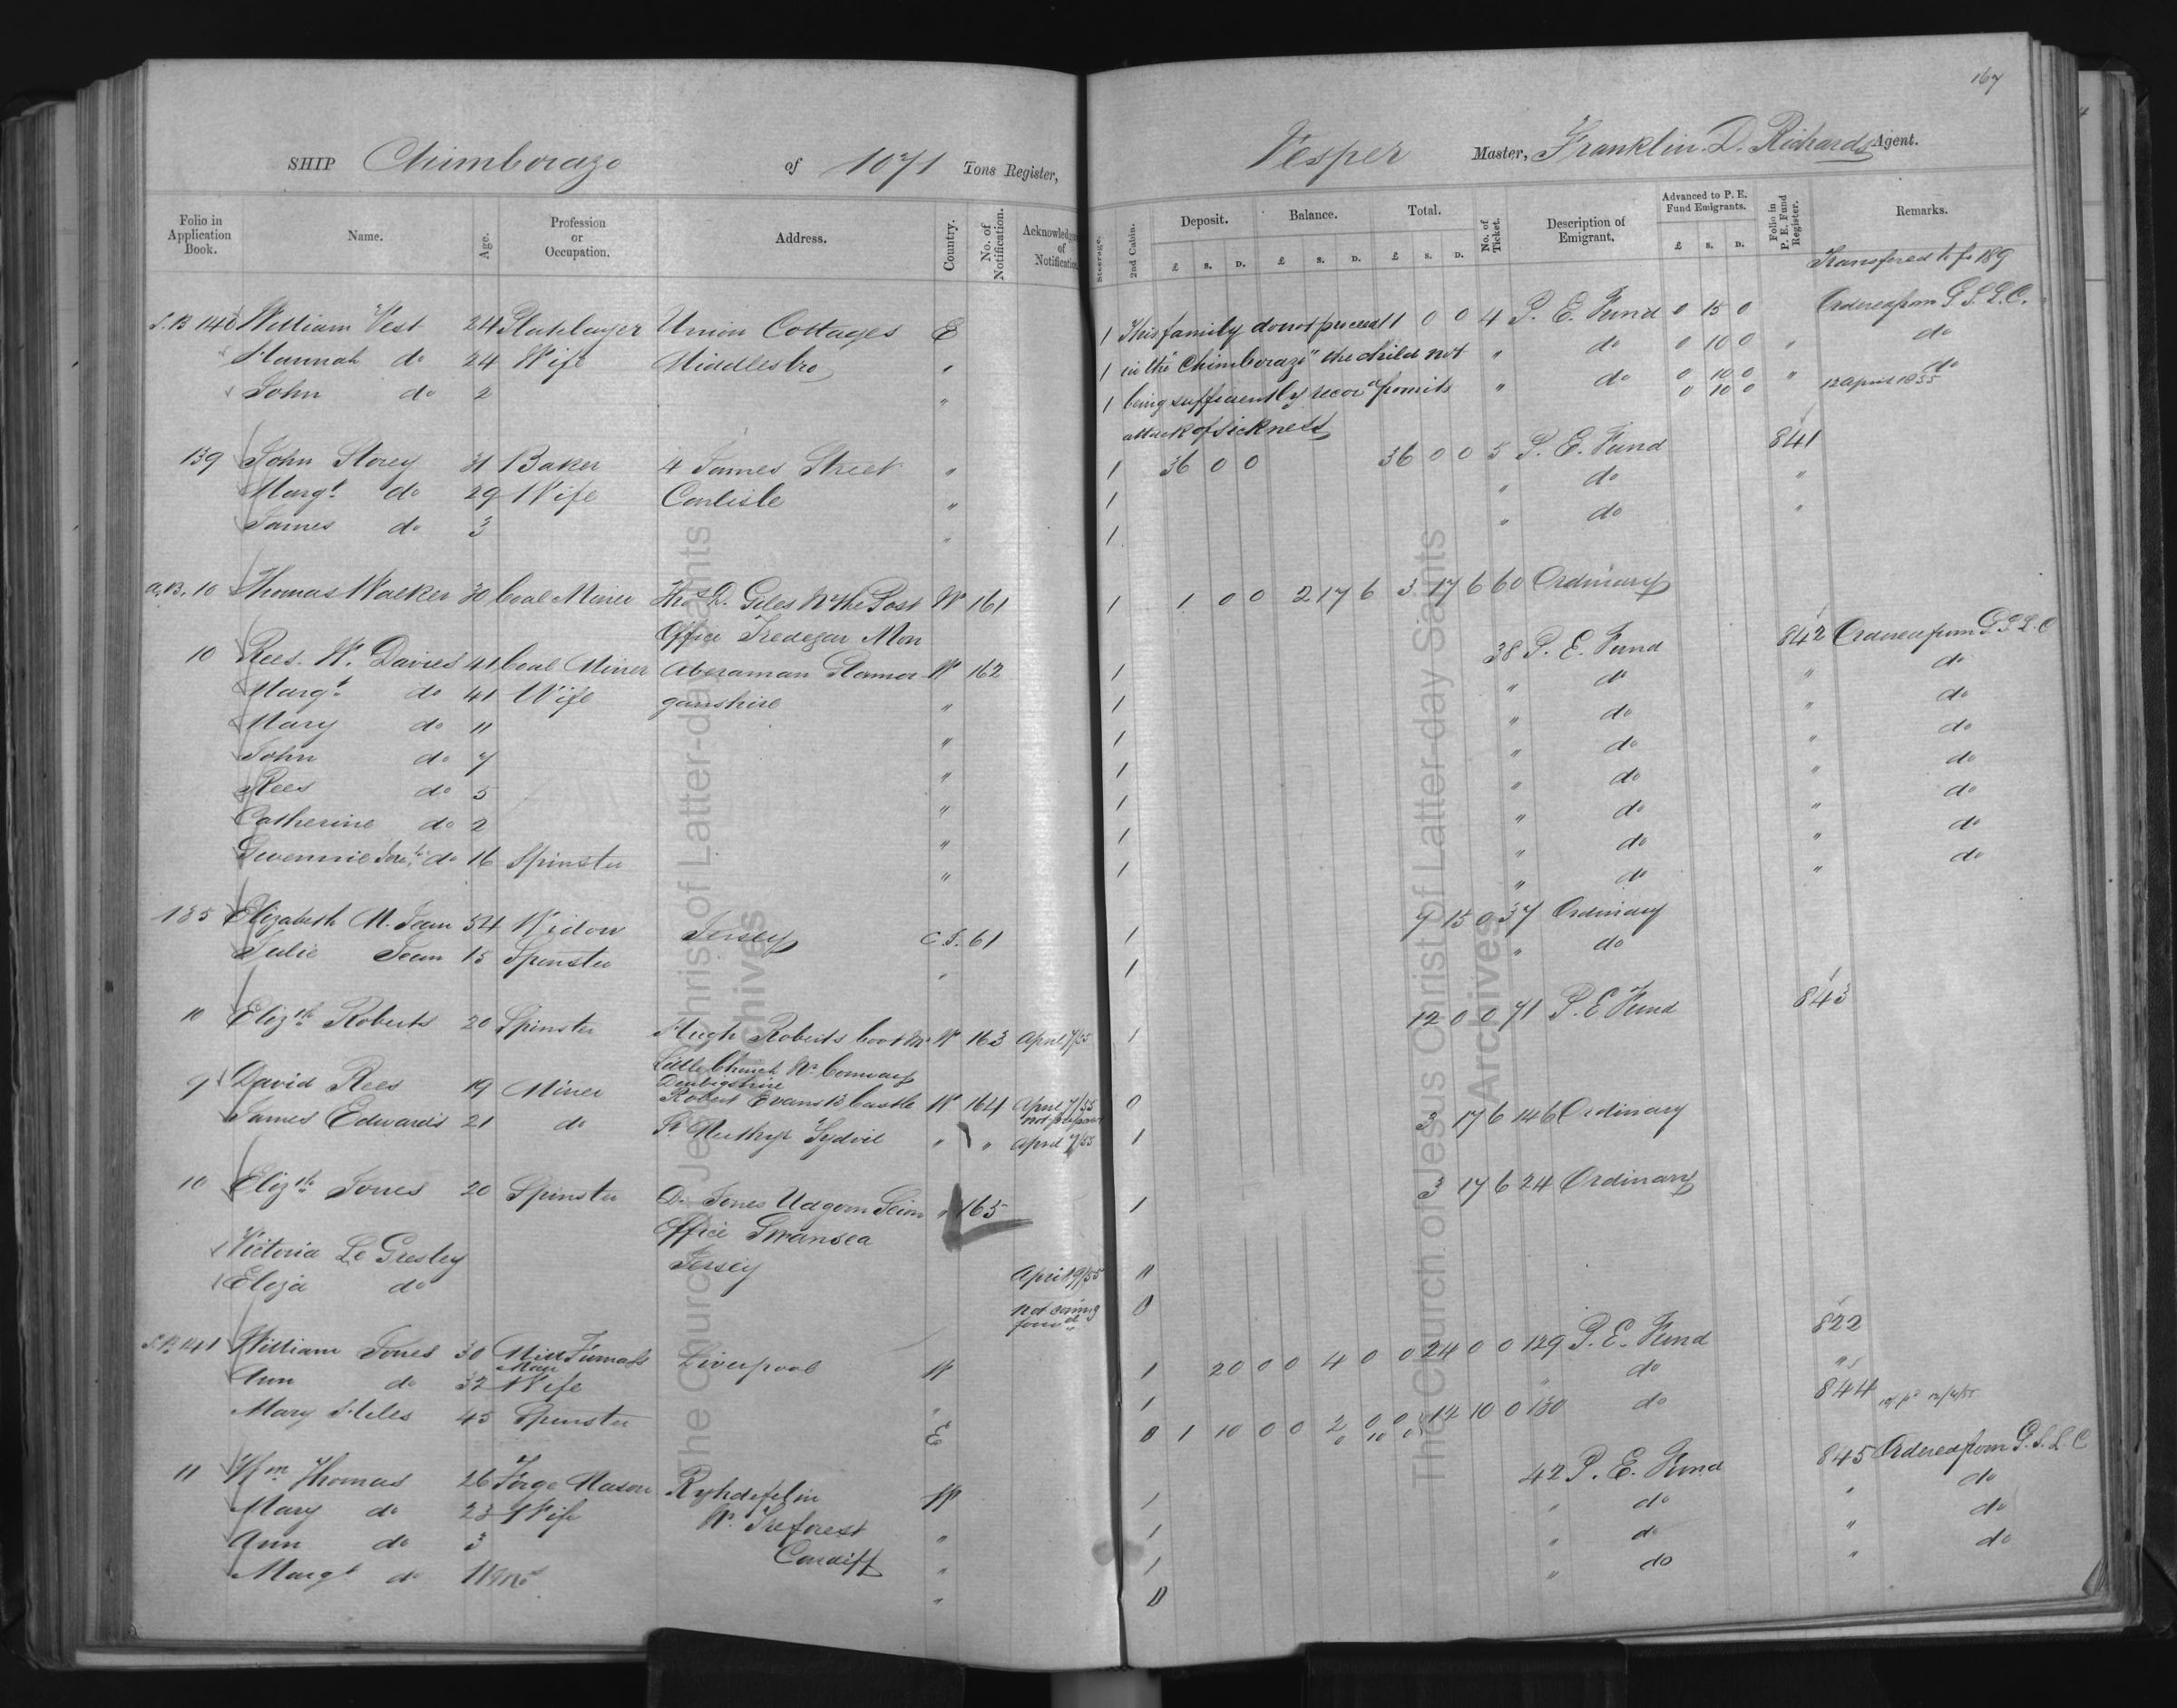 167
SHIP Chimborazo of 1071 Tons Register, Vesper Master, Franklin. D. Richards Agent.
Folio in Application Book. Name. Age. Profession or Occupation. Address. Country. No. of Notification. Acknowledgment of Notification. Steerage. 2nd Cabin. Deposit. £ s. D. Balance. £ s. D. Total. £ s. D. No. of Ticket. Description of Emigrant. Advanced to P. E. Fund Emigrants. £ s. D. Folio in P. E. Fund Register. Remarks.
Transfered to fo 189
William West 24 Platelayer Union Cottages E 1 This family do not proceed 1 0 0 4 P. E. Fund 0 15 0 Ordered from G. S. L. C.
Hannah do 24 Wife Middlesbro " 1 in the "Chimborazo" the child not " do 0 10 0 " do
John do 2 " 1 being sufficiently recovd from its " do 0 10 0 " do
0 10 0 12 April 1855
attack of sickness
139 John Storey 31 Baker 4 James Street " 1 36 0 0 36 0 0 5 P. E. Fund 841
Margt do 29 Wife Carlisle " 1 " do "
James do 3 " 1 " do "
a.B. 10 Thomas Walker 30 Coal Miner Thos D. Giles Nr the Post W 161 1 1 0 0 2 17 6 3 17 6 60 Ordinary
Office Tredegar Mon
10 Rees. W. Davies 41 Coal Miner Aberaman Glamor W 162 1 38 P. E. Fund 842 Ordered from G S L C
Margt do 41 Wife ganshire " 1 " do " do
Mary do 11 " 1 " do " do
John do 7 " 1 " do " do
Rees do 5 " 1 " do " do
Catherine do 2 " 1 " do " do
Gwennie do 16 Spinster " 1 " do " do
135 Elizabeth M. Jean 54 Widow Jersey C. I. 61 1 7 15 0 37 Ordinary
Julie Jean 15 Spinster " 1 " do
10 Elizth Roberts 20 Spinster Hugh Roberts W 163 April 7/55 1 12 0 0 71 P. E Fund 843
Little Church Nr Conway
Denbigshire
9 David Rees 19 Miner Robert Evans 13 Castle W 164 April 7/55 0
James Edwards 21 do St Merthyr Tydvil " " April 7/55 1 3 17 6 146 Ordinary
10 Elizth Jones 20 Spinster D. Jones Udgorn Seion " 165 1 3 17 6 24 Ordinary
Office Swansea
Victoria Le Gresley Jersey April 9/55 "
Eliza do not coming 0
S.B. 141 William Jones 30 Mill Furnace Man Liverpool W 1 20 0 0 4 0 0 24 0 0 129 P. E. Fund 822
Ann do 32 Wife " 1 " do "
Mary Hiles 45 Spinster E 0 1 10 0 0 2 0 0 12 10 0 130 do 844
0 10 0
11 Wm Thomas 26 Forge Mason W 1 42 P. E. Fund 845 Ordered from G. S. L. C
Mary do 23 Wife Nr Treforest " 1 " do " do
Ann do 3 Cardiff " 1 " do " do
Margt do 11 mos " 0 " do " do
The Church of Jesus Christ of Latter-day Saints
Archives
The Church of Jesus Christ of Latter-day Saints
Archives